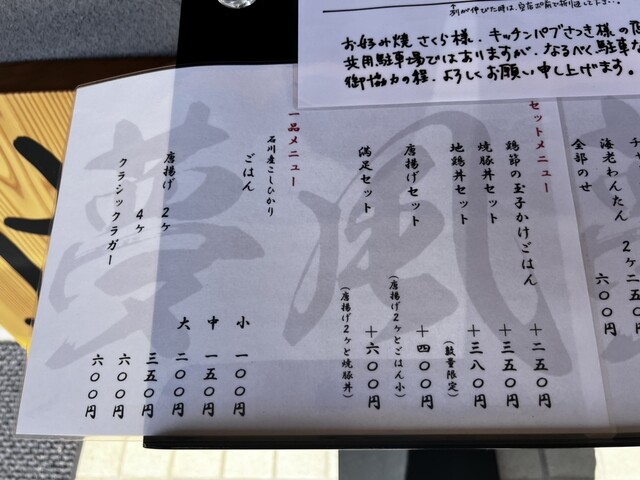 お好み焼 さくら様、キッチンパブさつき様の
共用駐車場ではありますが、なるべく駐車な
御協力の程、よろしくお願い申し上げます。
全部のせ 六〇〇円
海老わんたん 2ヶ 二五〇円
セットメニュー
鶏節の玉子かけごはん +二五〇円
焼豚丼セット +三五〇円
地鶏丼セット +三八〇円
(数量限定)
唐揚げセット +四〇〇円
(唐揚げ2ヶとごはん小)
満足セット +六〇〇円
(唐揚げ2ヶと焼豚丼)
一品メニュー
石川産こしひかり
ごはん 小 一〇〇円
中 一五〇円
大 二〇〇円
唐揚げ 2ヶ 三五〇円
4ヶ 六〇〇円
クラシックラガー 六〇〇円
夢風